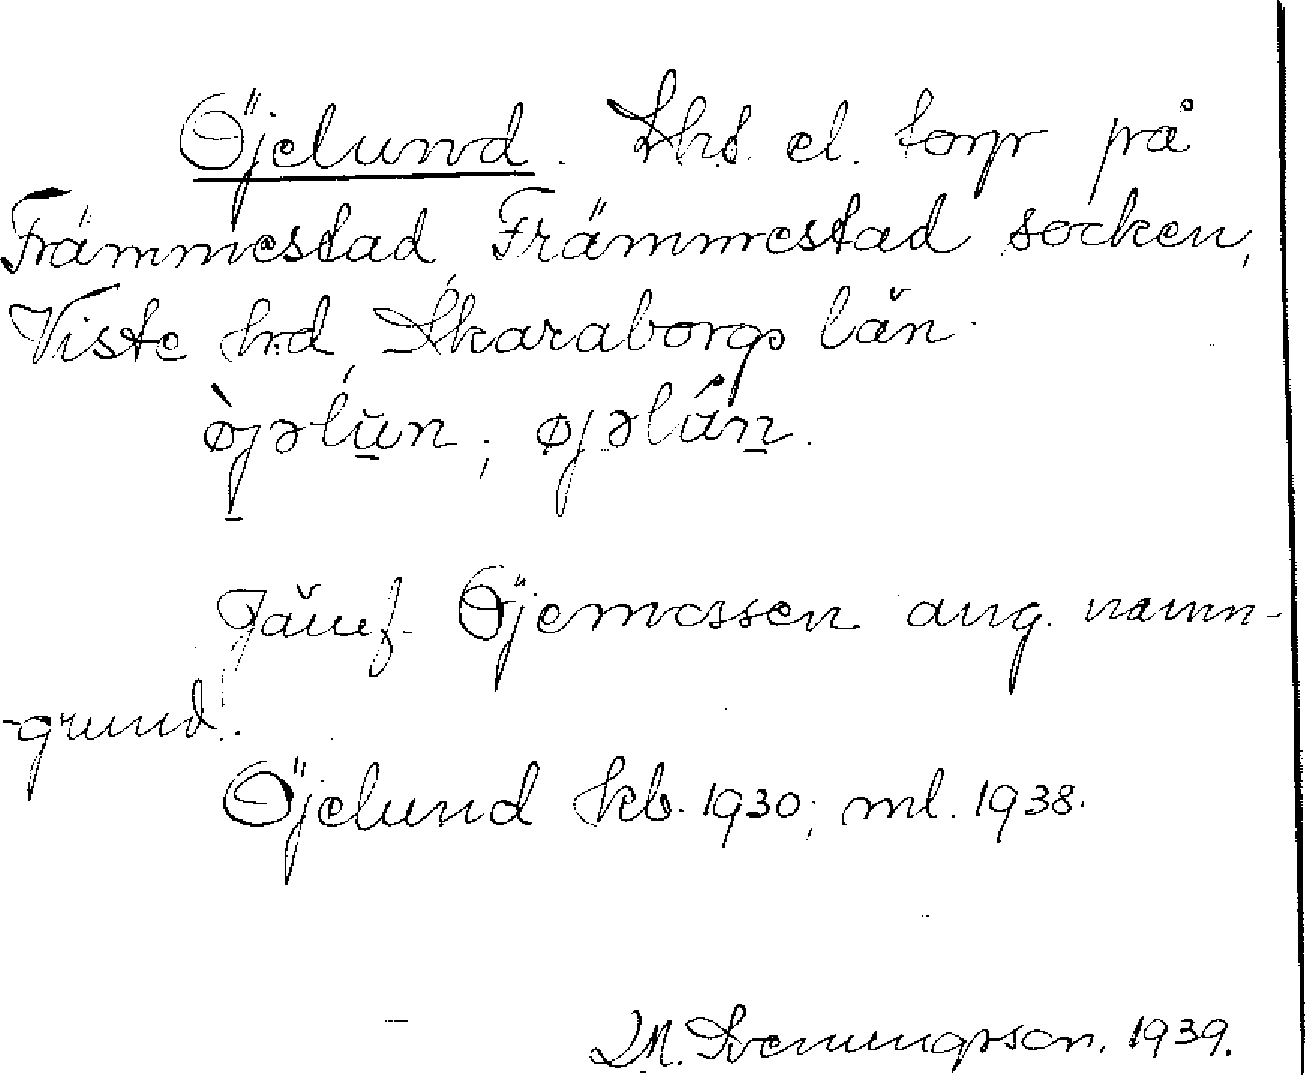 Öjelund. Lht. el. torp på
Främmestad, Främmestad socken,
Viste hd, Skaraborgs län.
òjəlŭn ; øjəlún.
Jämf. Öjemossen ang. namn-
-grund.
Öjelund kb. 1930; ml. 1938.
Svenungsson. 1939.